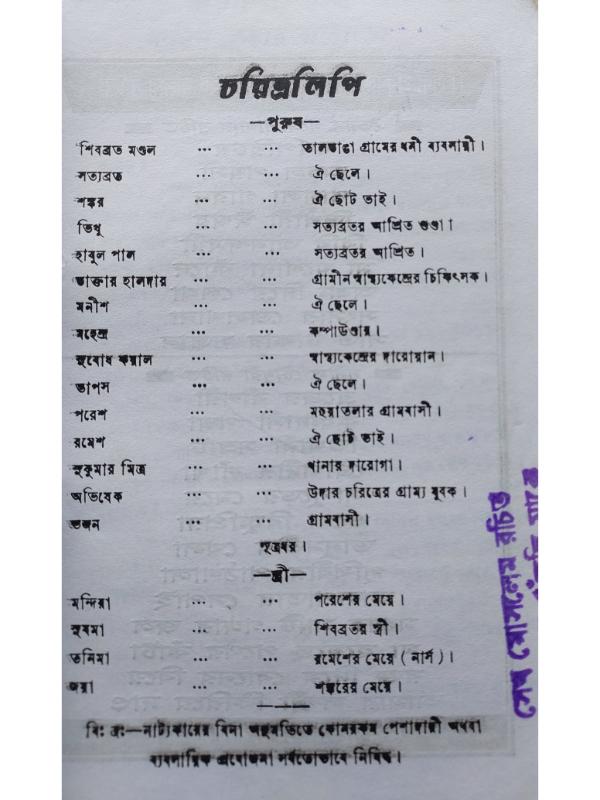 চরিত্রলিপি
—পুরুষ—
শিবব্রত মণ্ডল ... ... তালডাঙা গ্রামের ধনী ব্যবসায়ী।
সত্যব্রত ... ... ঐ ছেলে।
শঙ্কর ... ... ঐ ছোট ভাই।
তিখু ... ... সত্যব্রতর আশ্রিত গুণ্ডা।
হাবুল পাল ... ... সত্যব্রতর আশ্রিত।
ডাক্তার হালদার ... ... গ্রামীন স্বাস্থ্যকেন্দ্রের চিকিৎসক।
মনীশ ... ... ঐ ছেলে।
মহেন্দ্র ... ... কম্পাউণ্ডার।
সুবোধ কয়াল ... ... স্বাস্থ্যকেন্দ্রের দারোয়ান।
তাপস ... ... ঐ ছেলে।
পরেশ ... ... মহুয়াতলার গ্রামবাসী।
রমেশ ... ... ঐ ছোট ভাই।
সুকুমার মিত্র ... ... থানার দারোগা।
অভিষেক ... ... উদার চরিত্রের গ্রাম্য যুবক।
ভজন ... ... গ্রামবাসী।
সূত্রধর।
—স্ত্রী—
মন্দিরা ... ... পরেশের মেয়ে।
সুষমা ... ... শিবব্রতর স্ত্রী।
তনিমা ... ... রমেশের মেয়ে ( নার্স )।
জয়া ... ... শঙ্করের মেয়ে।
বিঃ দ্রঃ—নাট্যকারের বিনা অনুমতিতে কোনরকম পেশাদারী অথবা
ব্যবসায়িক প্রযোজনা সর্বতোভাবে নিষিদ্ধ।
সেখ মোসলেম রচিত